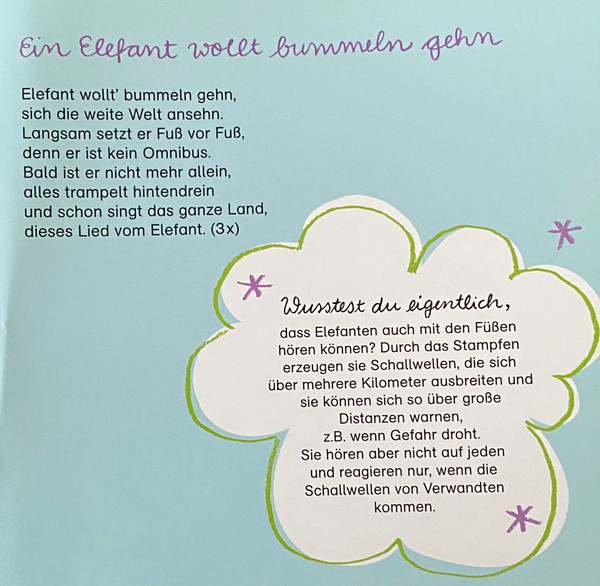 Ein Elefant wollt bummeln gehn
Elefant wollt' bummeln gehn,
sich die weite Welt ansehn.
Langsam setzt er Fuß vor Fuß,
denn er ist kein Omnibus.
Bald ist er nicht mehr allein,
alles trampelt hintendrein
und schon singt das ganze Land,
dieses Lied vom Elefant. (3x)
Wusstest du eigentlich,
dass Elefanten auch mit den Füßen
hören können? Durch das Stampfen
erzeugen sie Schallwellen, die sich
über mehrere Kilometer ausbreiten und
sie können sich so über große
Distanzen warnen,
z.B. wenn Gefahr droht.
Sie hören aber nicht auf jeden
und reagieren nur, wenn die
Schallwellen von Verwandten
kommen.